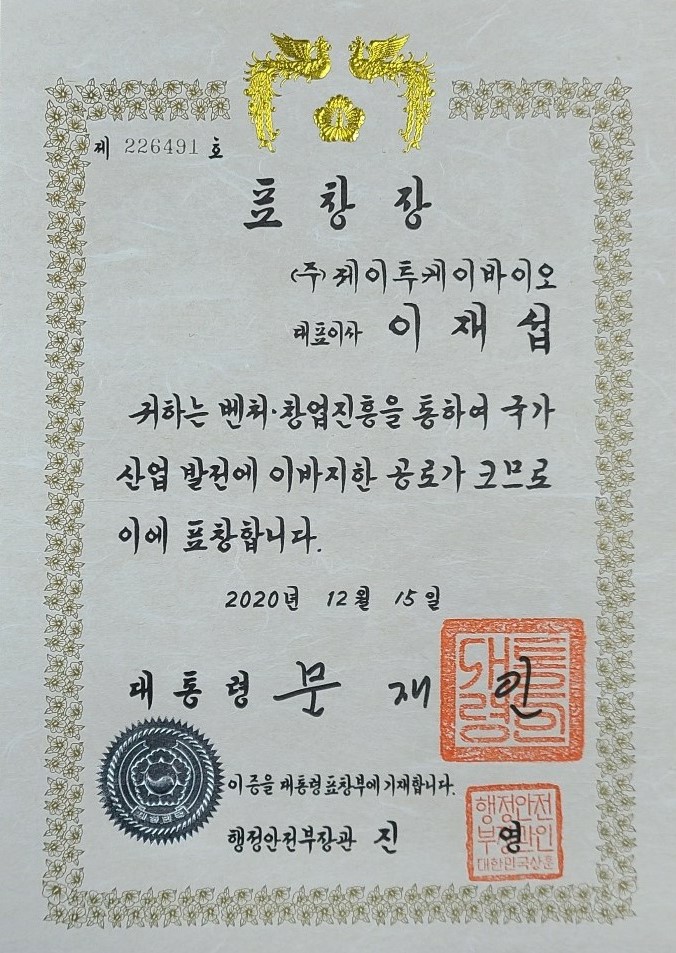 제 226491 호
표창장
(주)제이투케이바이오
대표이사 이재섭
귀하는 벤처·창업진흥을 통하여 국가
산업 발전에 이바지한 공로가 크므로
이에 표창합니다.
2020년 12월 15일
대통령 문재인
대통령의인
이 증을 대통령표창부에 기재합니다.
행정안전부장관 진영
행정안전
부장관인
대한민국상훈